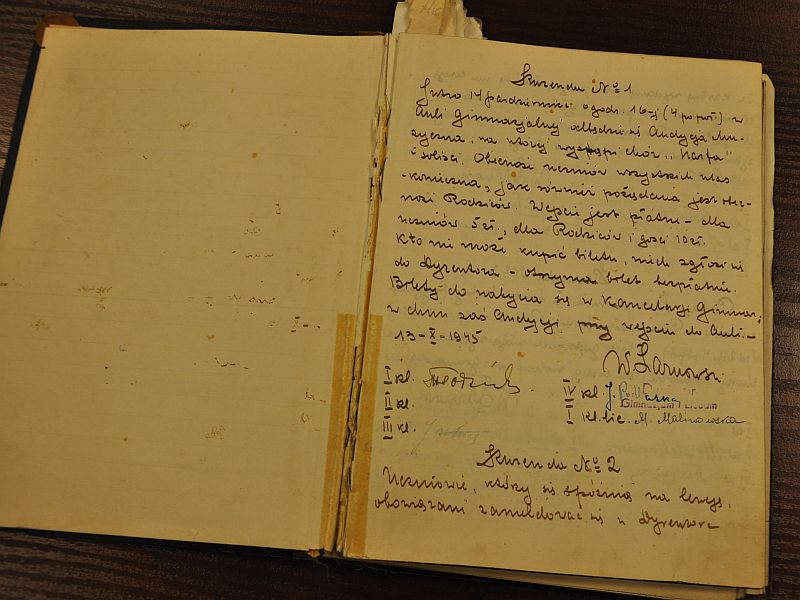 Kurenda No 1
Jutro 14 października o godz. 16-j (4 po poł.) w
auli gimnazjalnej odbędzie się Audycja Mu-
zyczna, na której wystąpi chór „Harfa"
i soliści. Obecność uczniów wszystkich klas
konieczna, jak również pożądana jest obec-
ność Rodziców. Wejście jest płatne - dla
uczniów 5 zł., dla Rodziców i gości 10 zł.
Kto nie może kupić biletu, niech zgłosi się
do Dyrektora - otrzyma bilet bezpłatnie.
Bilety do nabycia są w Kancelarji Gimnazj.
w dniu zaś Audycji przy wejściu do Auli.-
13-X-1945
I kl.
IV kl. J. Podlaska
II kl.
Gimnazjum i Liceum
III kl.
I kl. lic. M. Malinowska
Kurenda No 2
Uczniowie, którzy się spóźnią na lekcje,
obowiązani zameldować się u Dyrektora